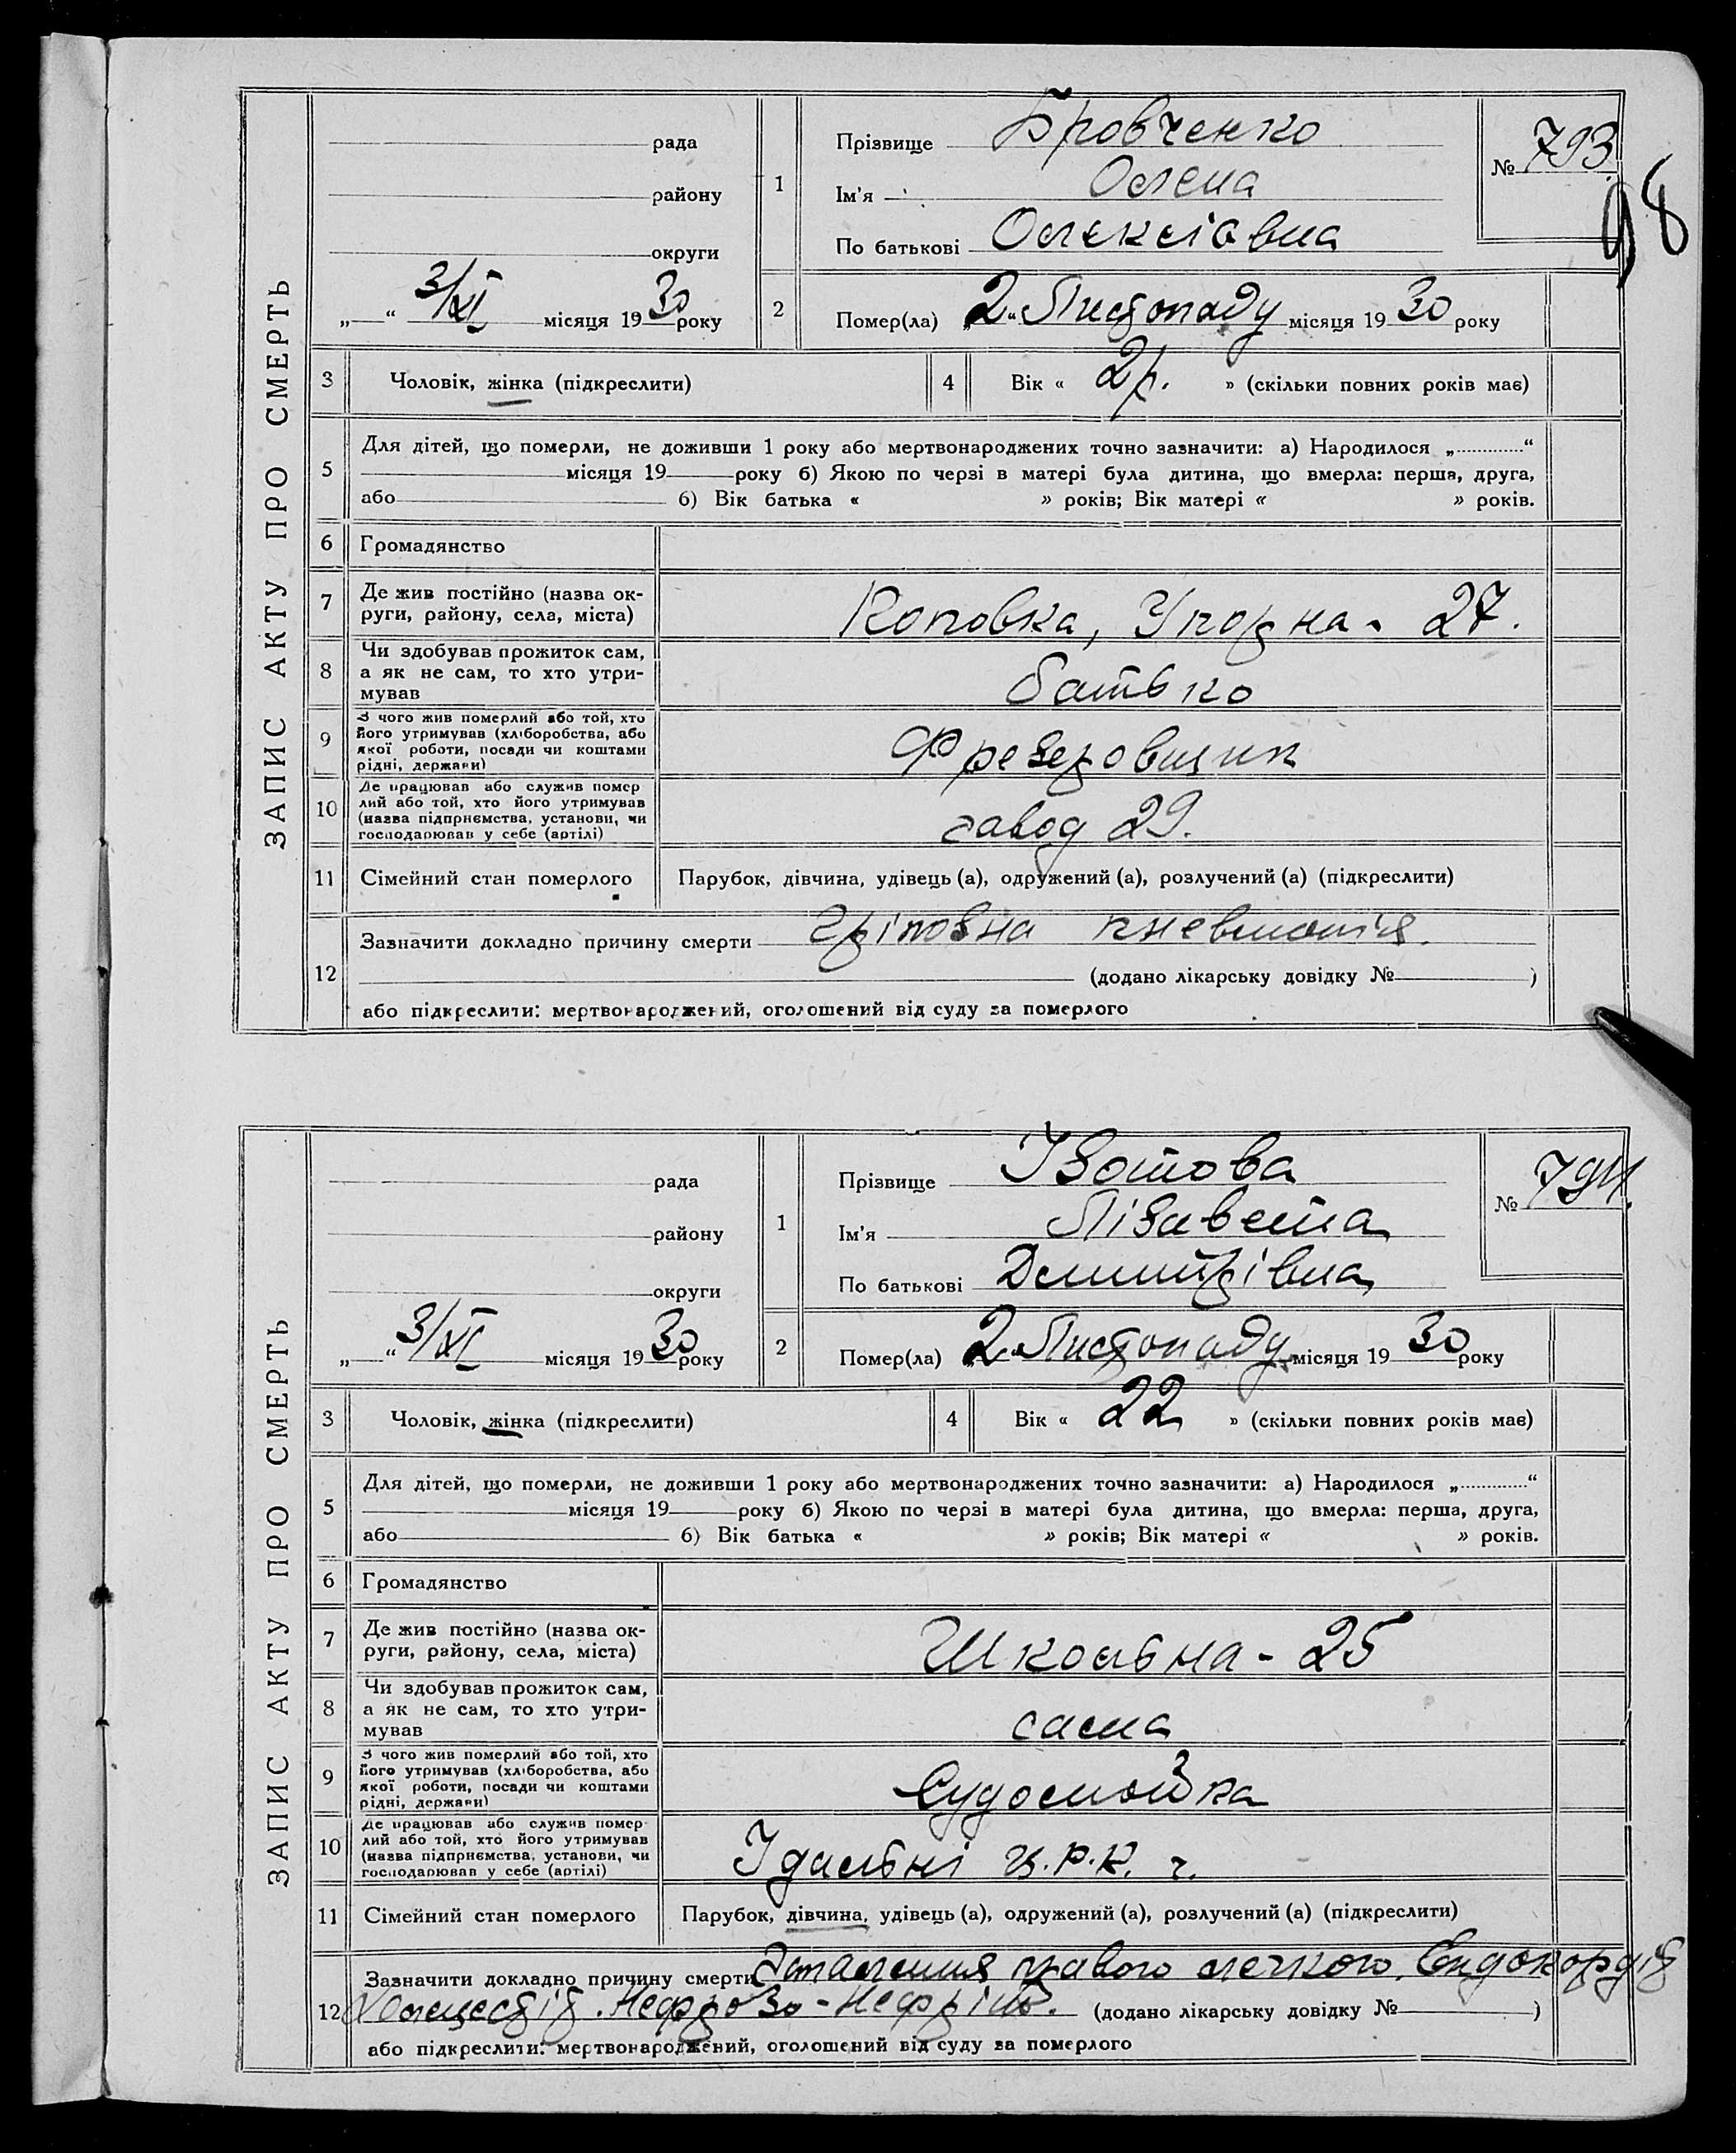 ЗАПИС АКТУ ПРО СМЕРТЬ
рада
району
округи
„ “ 3/XI місяця 1930 року
1
Прізвище Бровченко
Ім'я Олена
По батькові Олексіавна
№ 793
98
2
Помер(ла) „2“ Листопаду місяця 1930 року
3
Чоловік, жінка (підкреслити)
4
Вік « 2р. » (скільки повних років має)
5
Для дітей, що померли, не доживши 1 року або мертвонароджених точно зазначити: а) Народилося „ “
місяця 19 року б) Якою по черзі в матері була дитина, що вмерла: перша, друга,
або б) Вік батька « » років; Вік матері « » років.
6
Громадянство
7
Де жив постійно (назва ок-
руги, району, села, міста)
Коповка, Упорна - 27.
8
Чи здобував прожиток сам,
а як не сам, то хто утри-
мував
батько
9
З чого жив померлий або той, хто
його утримував (хліборобства, або
якої роботи, посади чи коштами
рідні, держави)
Фрезеровщик
10
Де працював або служив помер
лий або той, хто його утримував
(назва підприємства, установи, чи
господарював у себе (артілі)
завод 29.
11
Сімейний стан померлого
Парубок, дівчина, удівець (а), одружений (а), розлучений (а) (підкреслити)
12
Зазначити докладно причину смерти гріповна пневмонія.
(додано лікарську довідку № )
або підкреслити: мертвонароджений, оголошений від суду за померлого
ЗАПИС АКТУ ПРО СМЕРТЬ
рада
району
округи
„ “ 3/XI місяця 1930 року
1
Прізвище Ізотова
Ім'я Лізавета
По батькові Демитрівна
№ 794.
2
Помер(ла) „2“ Листопаду місяця 1930 року
3
Чоловік, жінка (підкреслити)
4
Вік « 22 » (скільки повних років має)
5
Для дітей, що померли, не доживши 1 року або мертвонароджених точно зазначити: а) Народилося „ “
місяця 19 року б) Якою по черзі в матері була дитина, що вмерла: перша, друга,
або б) Вік батька « » років; Вік матері « » років.
6
Громадянство
7
Де жив постійно (назва ок-
руги, району, села, міста)
Школьна - 25
8
Чи здобував прожиток сам,
а як не сам, то хто утри-
мував
сама
9
З чого жив померлий або той, хто
його утримував (хліборобства, або
якої роботи, посади чи коштами
рідні, держави)
Судомойка
10
Де працював або служив помер
лий або той, хто його утримував
(назва підприємства, установи, чи
господарював у себе (артілі)
Їдальні ц.р.к.
11
Сімейний стан померлого
Парубок, дівчина, удівець (а), одружений (а), розлучений (а) (підкреслити)
12
Зазначити докладно причину смерти Запалення правого легкого. Ендокордіт
Холецестіт. Нефрозо-нефріт. (додано лікарську довідку № )
або підкреслити: мертвонароджений, оголошений від суду за померлого